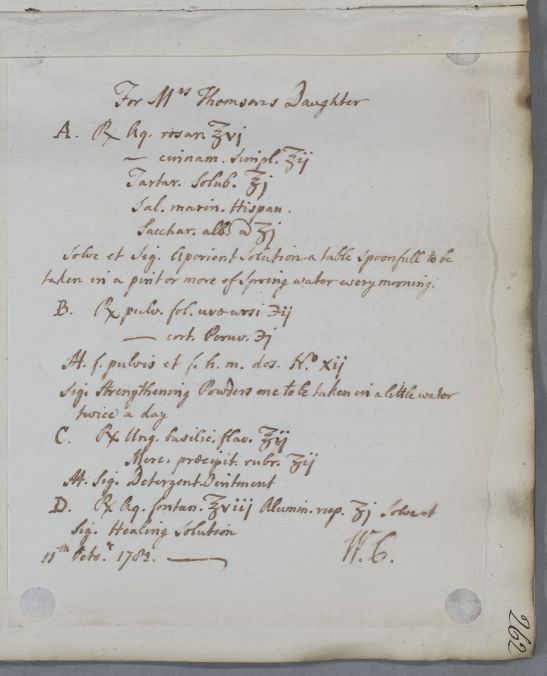 For Mrs Thomsons Daughter
A. ℞ Aq. rosar. ℥vj
— cinnam. Simpl. ℥ij
Tartar. Solub. ℥j
Sal. marin. Hispan.
Sacchar. alb. a ℥j
Solve et Sig. Aperient Solution a table Spoonfull to be
taken in a pint or more of Spring water every morning.
B. ℞ pulv. fol. uvæ ursi ℈ij
— cort. Peruv. ℈j
M. f. pulvis et f. h. m. dos. No. xij
Sig. Strengthening Powders one to be taken in a little water
twice a day
C. ℞ Ung. basilic. flav. ℥ij
Merc. præcipit. rubr. ʒij
M. Sig. Detergent Ointment
D. ℞ Aq. fontan. ℥viij Alumin. rup. ʒj Solve et
Sig. Healing Solution
11th Octr. 1782. —
W. C.
262